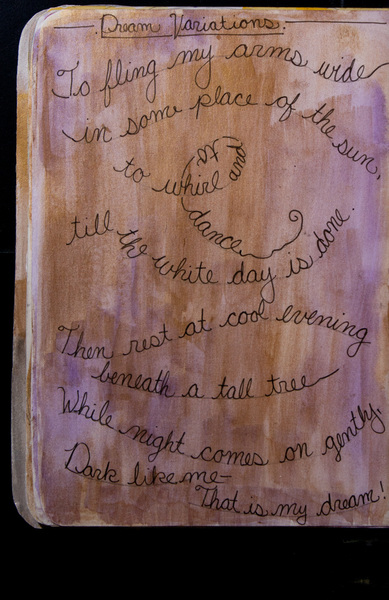 Dream Variations.
To fling my arms wide
in some place of the sun,
to whirl and to
dance
till the white day is done.
Then rest at cool evening
beneath a tall tree
While night comes on gently
Dark like me—
That is my dream!